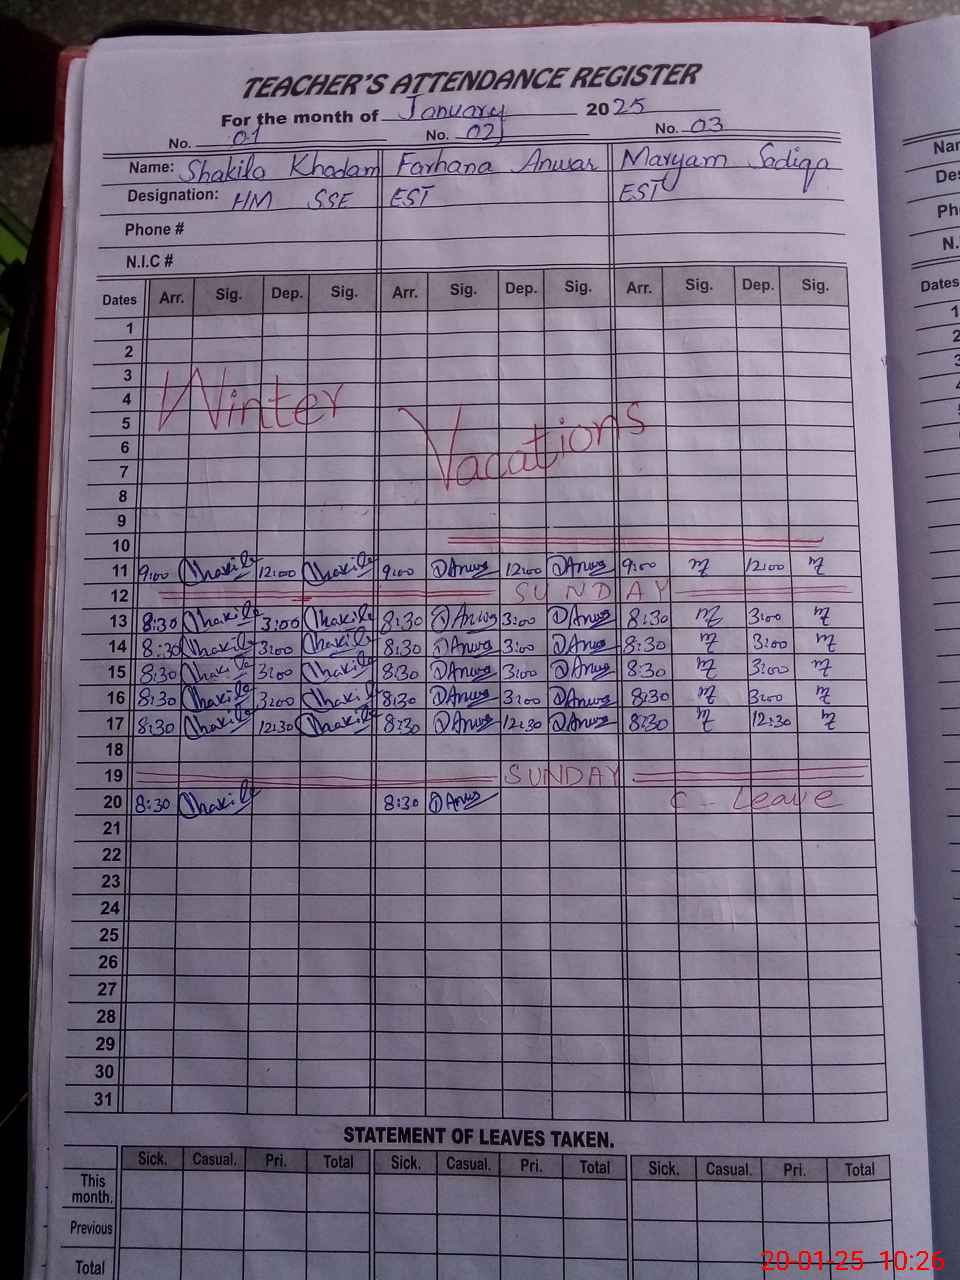 TEACHER'S ATTENDANCE REGISTER
For the month of January 2025
No. 01 No. 02 No. 03
Name: Shakila Khadam Farhana Anwar Maryam Sadiqa
Designation: HM SSE EST EST
Phone #
N.I.C #
Dates Arr. Sig. Dep. Sig. Arr. Sig. Dep. Sig. Arr. Sig. Dep. Sig.
1
2
3
4
Winter
5
6
Vacations
7
8
9
10
11 9:00 Shakila 12:00 Shakila 9:00 Anwar 12:00 Anwar 9:00 12:00
12 SUNDAY
13 8:30 Shakila 3:00 Shakila 8:30 Anwar 3:00 Anwar 8:30 3:00
14 8:30 Shakila 3:00 Shakila 8:30 Anwar 3:00 Anwar 8:30 3:00
15 8:30 Shakila 3:00 Shakila 8:30 Anwar 3:00 Anwar 8:30 3:00
16 8:30 Shakila 3:00 Shakila 8:30 Anwar 3:00 Anwar 8:30 3:00
17 8:30 Shakila 12:30 Shakila 8:30 Anwar 12:30 Anwar 8:30 12:30
18
19 SUNDAY
20 8:30 Shakila 8:30 Anwar C - Leave
21
22
23
24
25
26
27
28
29
30
31
STATEMENT OF LEAVES TAKEN.
Sick. Casual. Pri. Total Sick. Casual. Pri. Total Sick. Casual. Pri. Total
This month.
Previous
Total
Dates
1
2
3
20-01-25 10:26